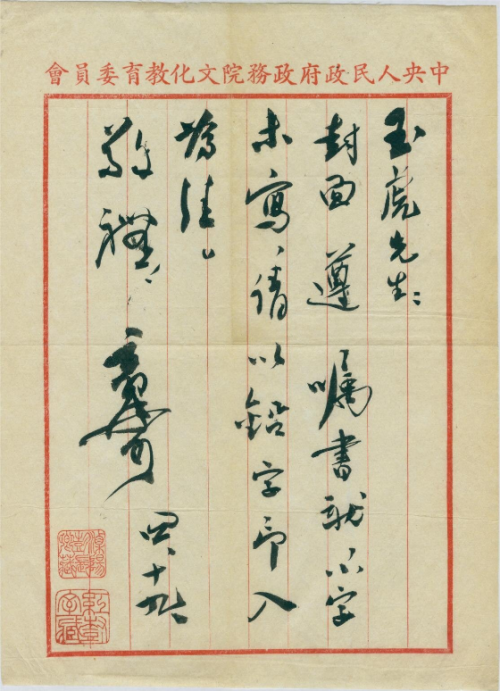 中央人民政府政務院文化教育委員會
玉虎先生：
封面遵囑書就小字
未寫、請以鉛字印入
為佳。
敬禮、
四、十九